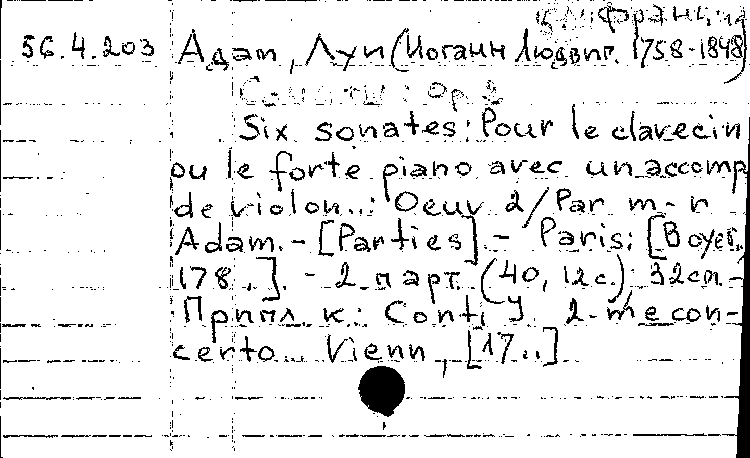 Франция
56.4.203 Адам, Луи (Иоганн Людвиг. 1758-1848)
Сонаты: Op. 2
Six sonates: Pour le clavecin
ou le forte piano avec un accomp
de violon..: Oeuv 2/Par m-r
Adam. - [Parties] - Paris: [Boyer,
178.]. - 2 парт. (40, 12с.); 32см.-
Припл. к: Conti J. 2-me con-
certo... Vienn, [17..]